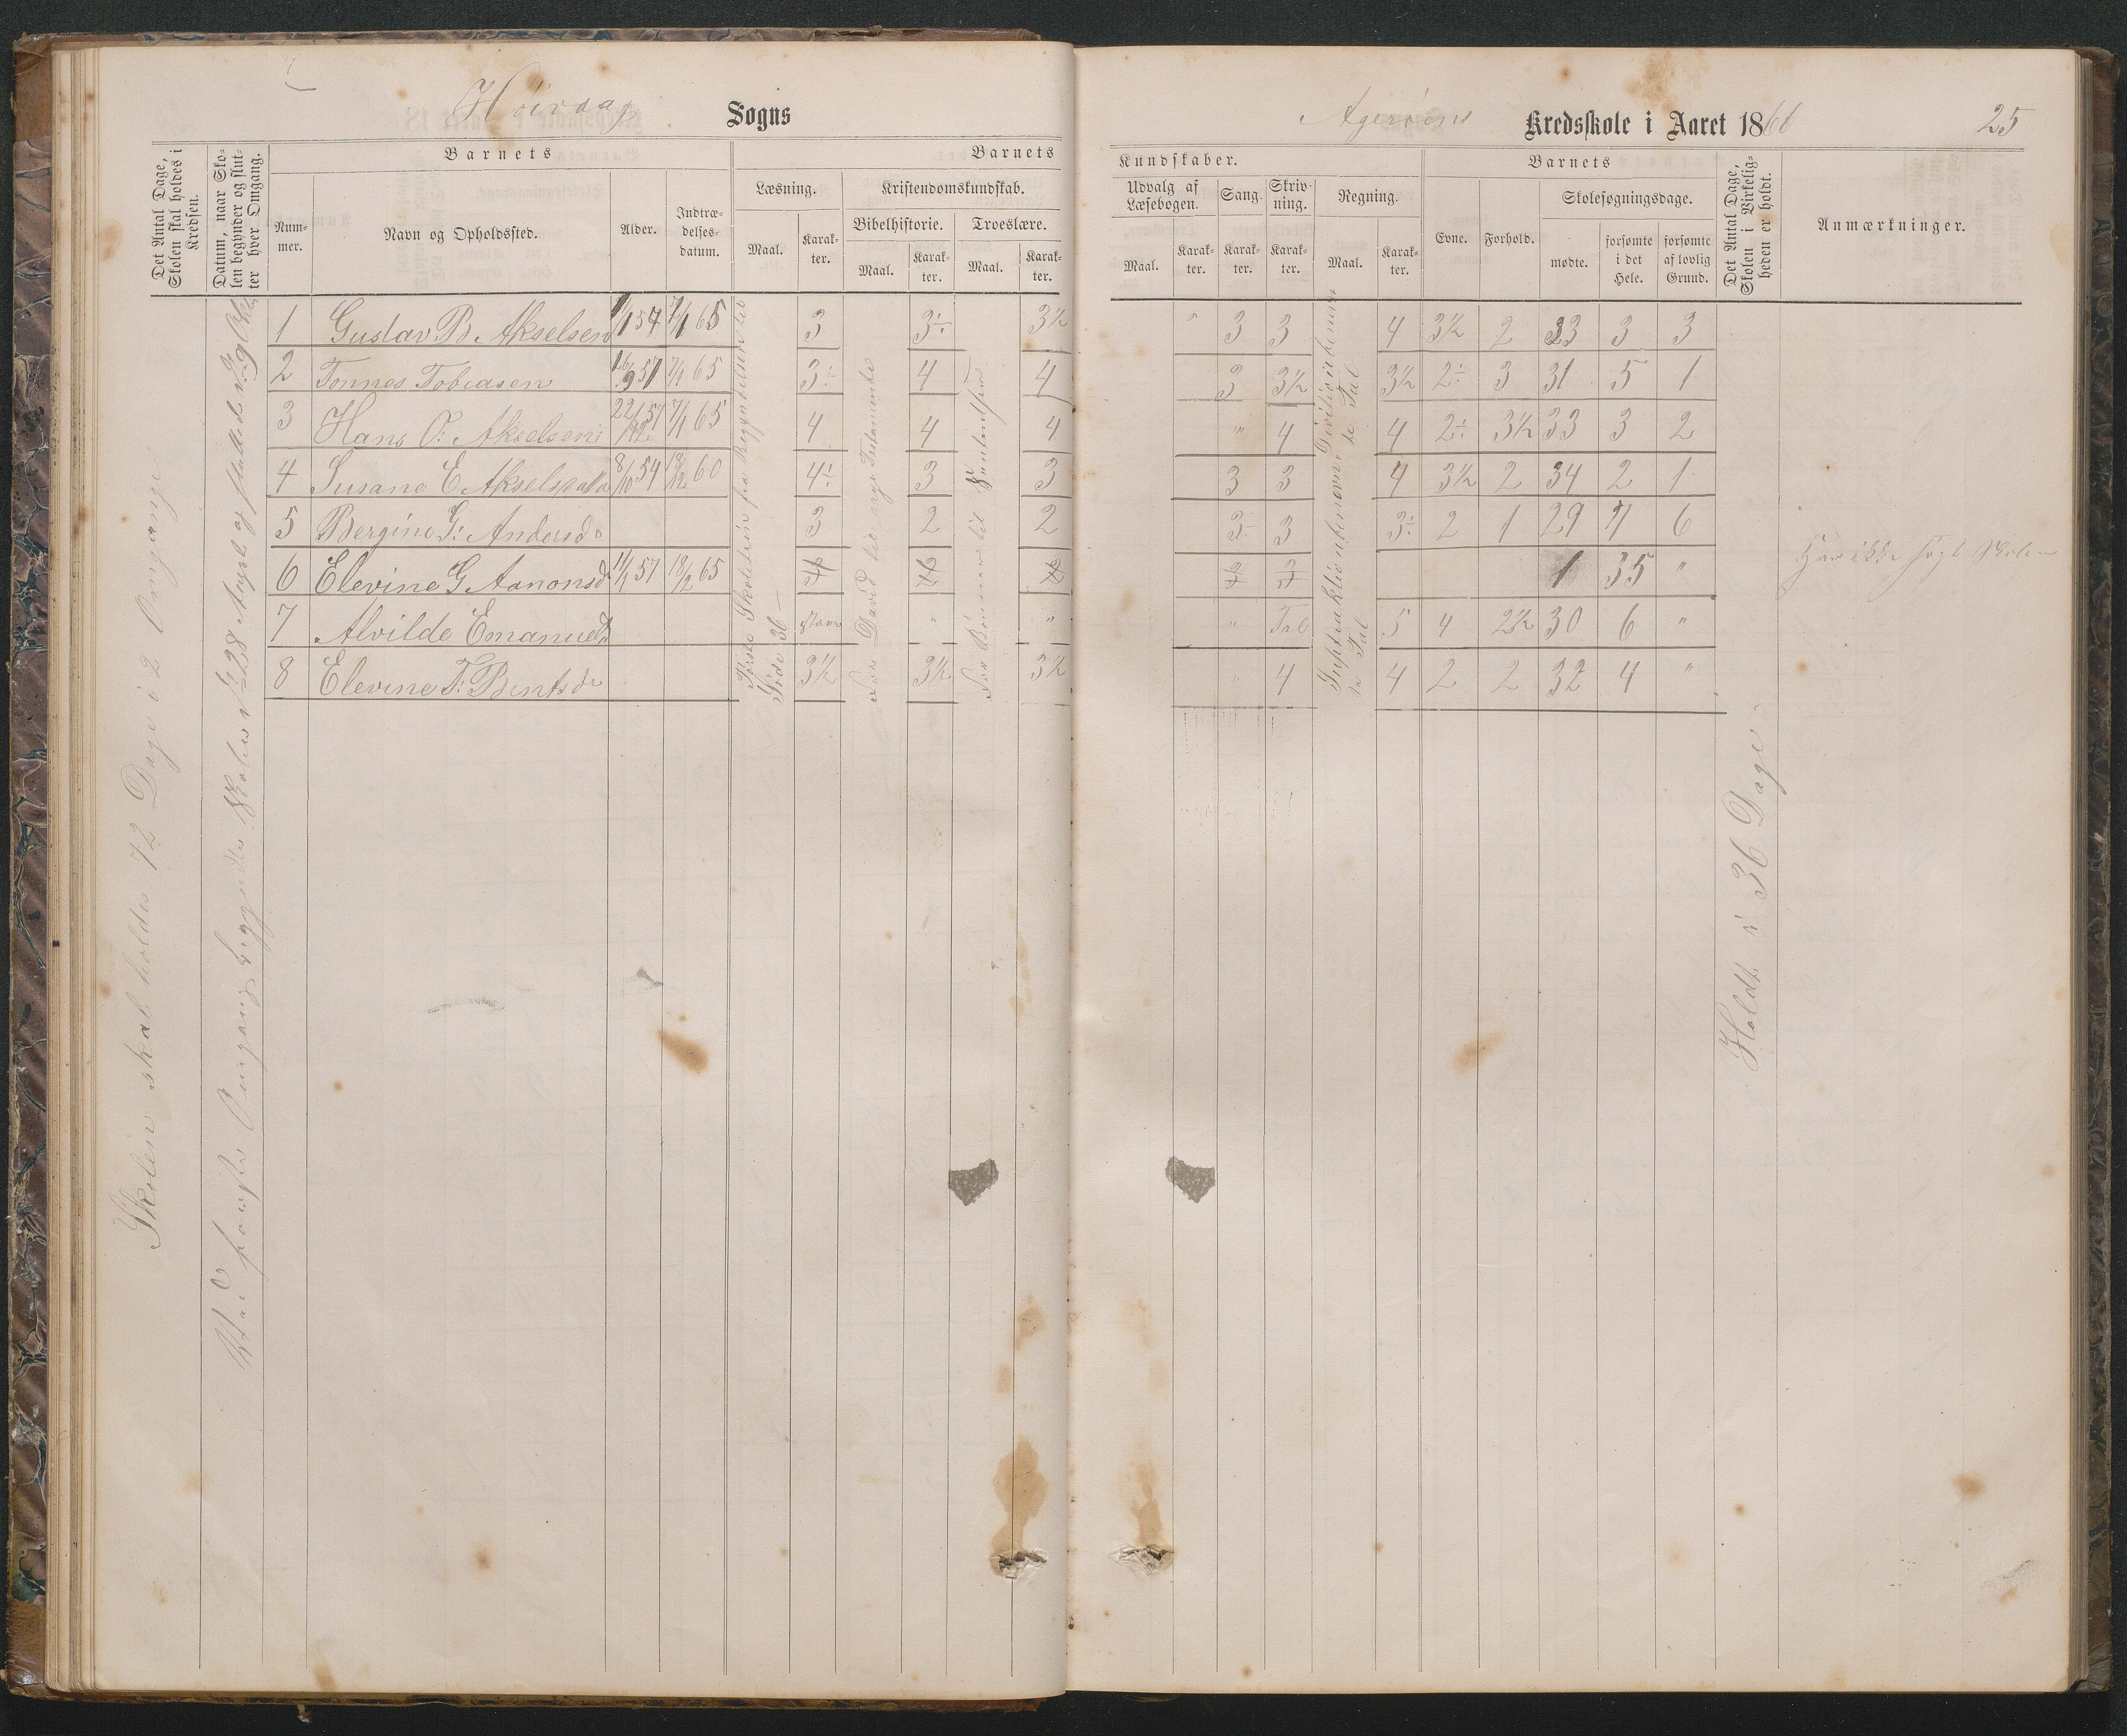 Høivaag Sogns
Agerøens Kredsskole i Aaret 1866 25
Det Antal Dage, Skolen skal holdes i Kredsen.
Datum, naar Skolen begynder og slutter hver Omgang.
Barnets
Nummer.
Navn og Opholdssted.
Alder.
Indtrædelsesdatum.
Barnets
Læsning.
Maal.
Karakter.
Kristendomskundskab.
Bibelhistorie.
Maal.
Karakter.
Troeslære.
Maal.
Karakter.
Kundskaber.
Udvalg af Læsebogen.
Maal.
Karakter.
Sang.
Karakter.
Skrivning.
Karakter.
Regning.
Maal.
Karakter.
Barnets
Evne.
Forhold.
Skolesøgningsdage.
mødte.
forsømte i det Hele.
forsømte af lovlig Grund.
Det Antal Dage, Skolen i Virkeligheden er holdt.
Anmærkninger.
Skolen skal holdes 72 Dage i 2 Omgange
Omgang begyndte Skolen d. 28 August og sluttede d. 9 Oktbr
1 Gustav B. Akselsen 1/1 57 7/1 65 3 3÷ 3½ " 3 3 4 3½ 2 33 3 3
2 Tønnes Tobiasen 16/9 51 7/1 65 3÷ 4 4 3 3½ 3½ 2÷ 3 31 5 1
3 Hans O: Akselsen 22/12 57 7/1 65 4 4 4 " 4 4 2÷ 3½ 33 3 2
4 Susane E. Akselsdatr 8/10 54 18/12 60 4÷ 3 3 3 3 4 3½ 2 34 2 1
5 Bergine G: Andersdr 3 2 2 3÷ 3 3÷ 2 1 29 7 6
6 Elevine G. Aanonsd 11/1 57 18/2 65 1 35 " Har ikke søgt Skolen
7 Alvilde Emanuelsd " " " Tal 5 4 2½ 30 6 "
8 Elevine T: Bentsdr 3½ 3½ 3½ " 4 4 2 2 32 4 "
Første Skoletrin fra Begyndelsen til Side 36
Fra David til nye Testamente
Holdt i 36 Dage